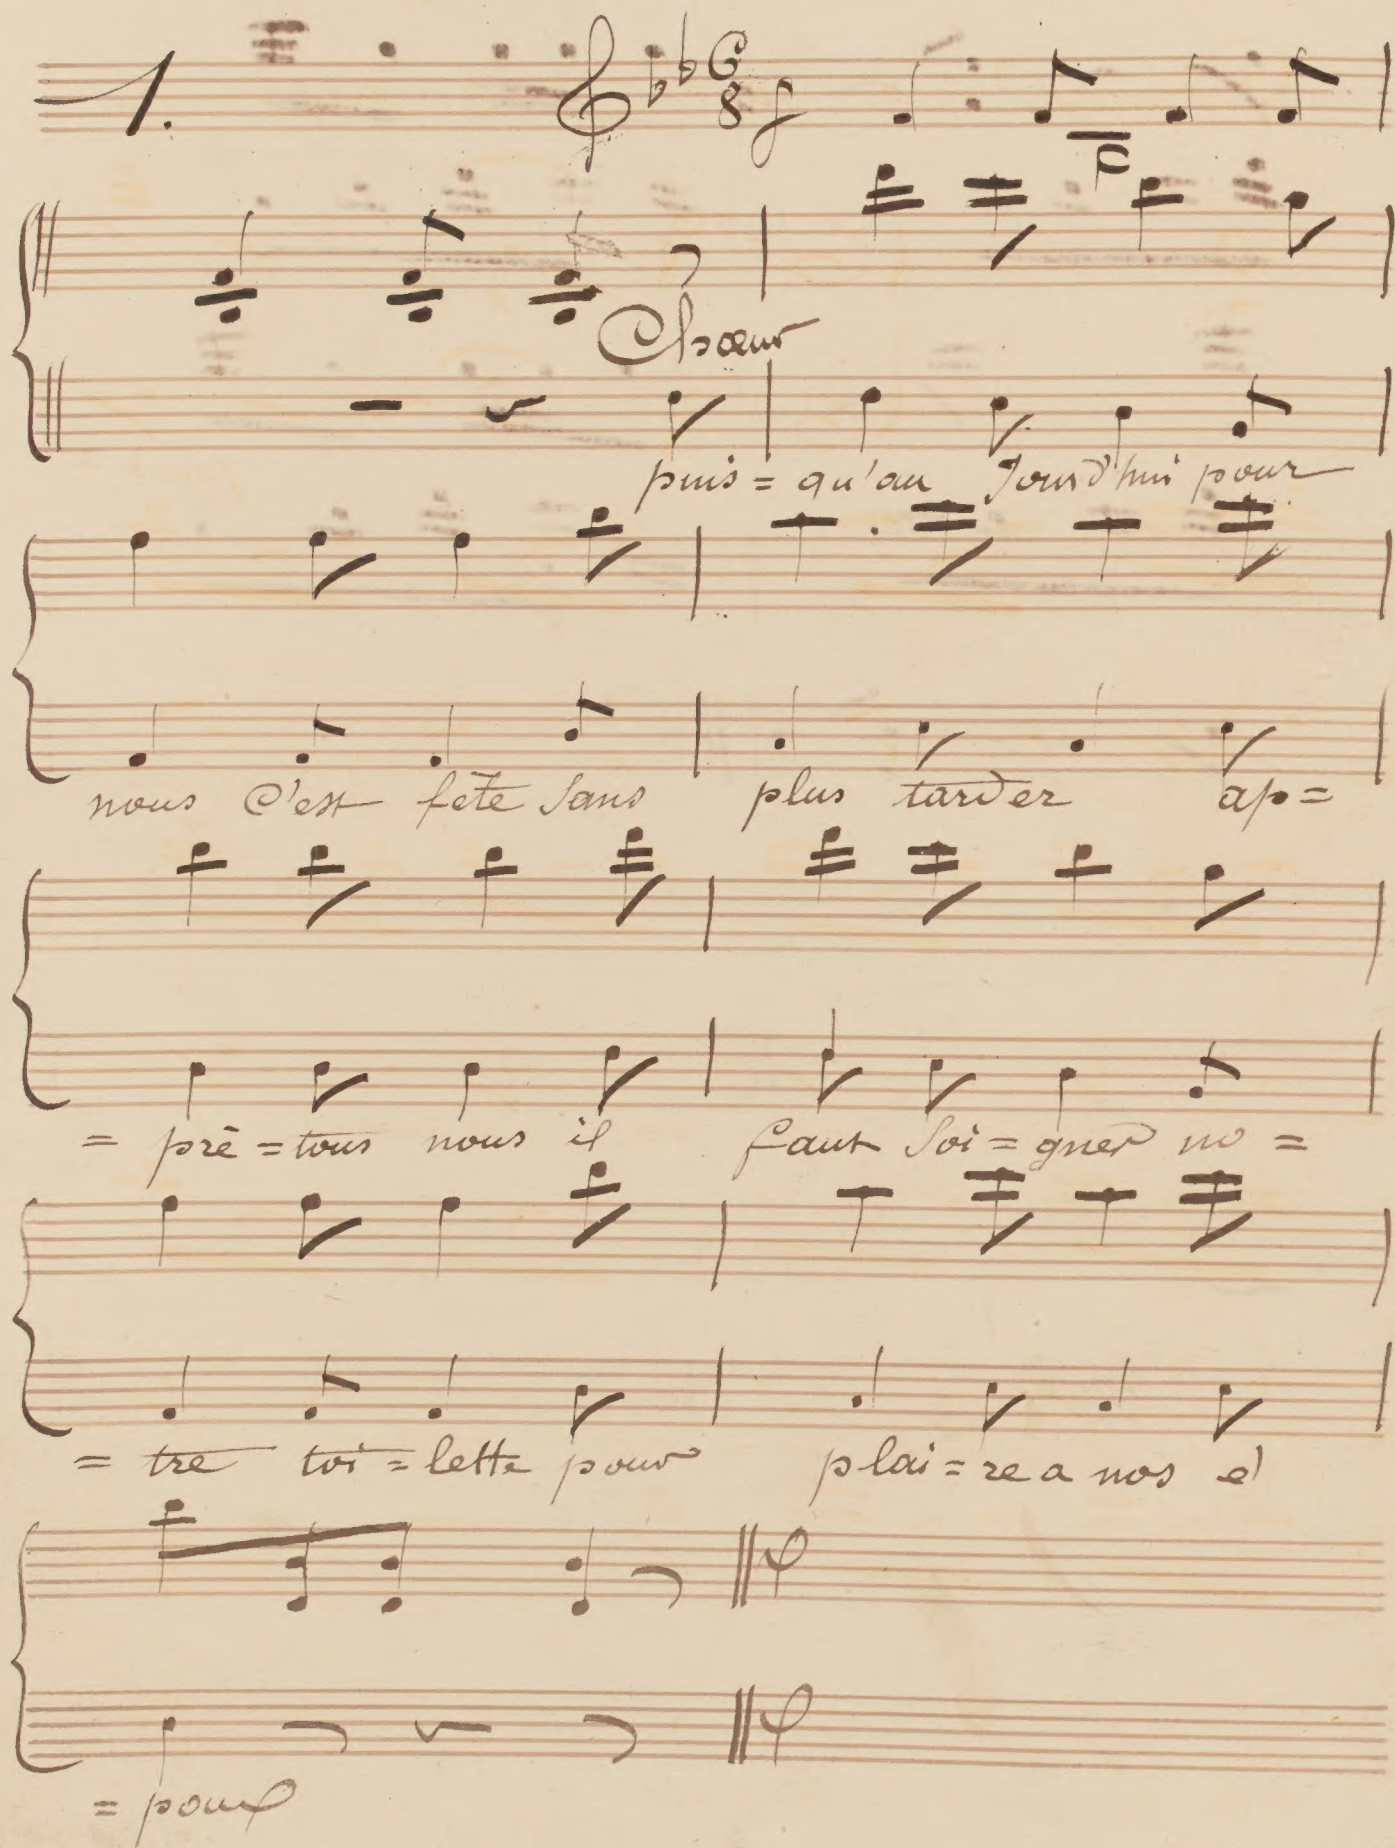 1. 6 8 f
p
Chœur
puis = qu'au Jourd'hui pour
nous C'est fête Sans plus tarder ap =
= prê = tous nous il faut Soi = gner no =
= tre toi = lette pour plai = re a nos é
= poux